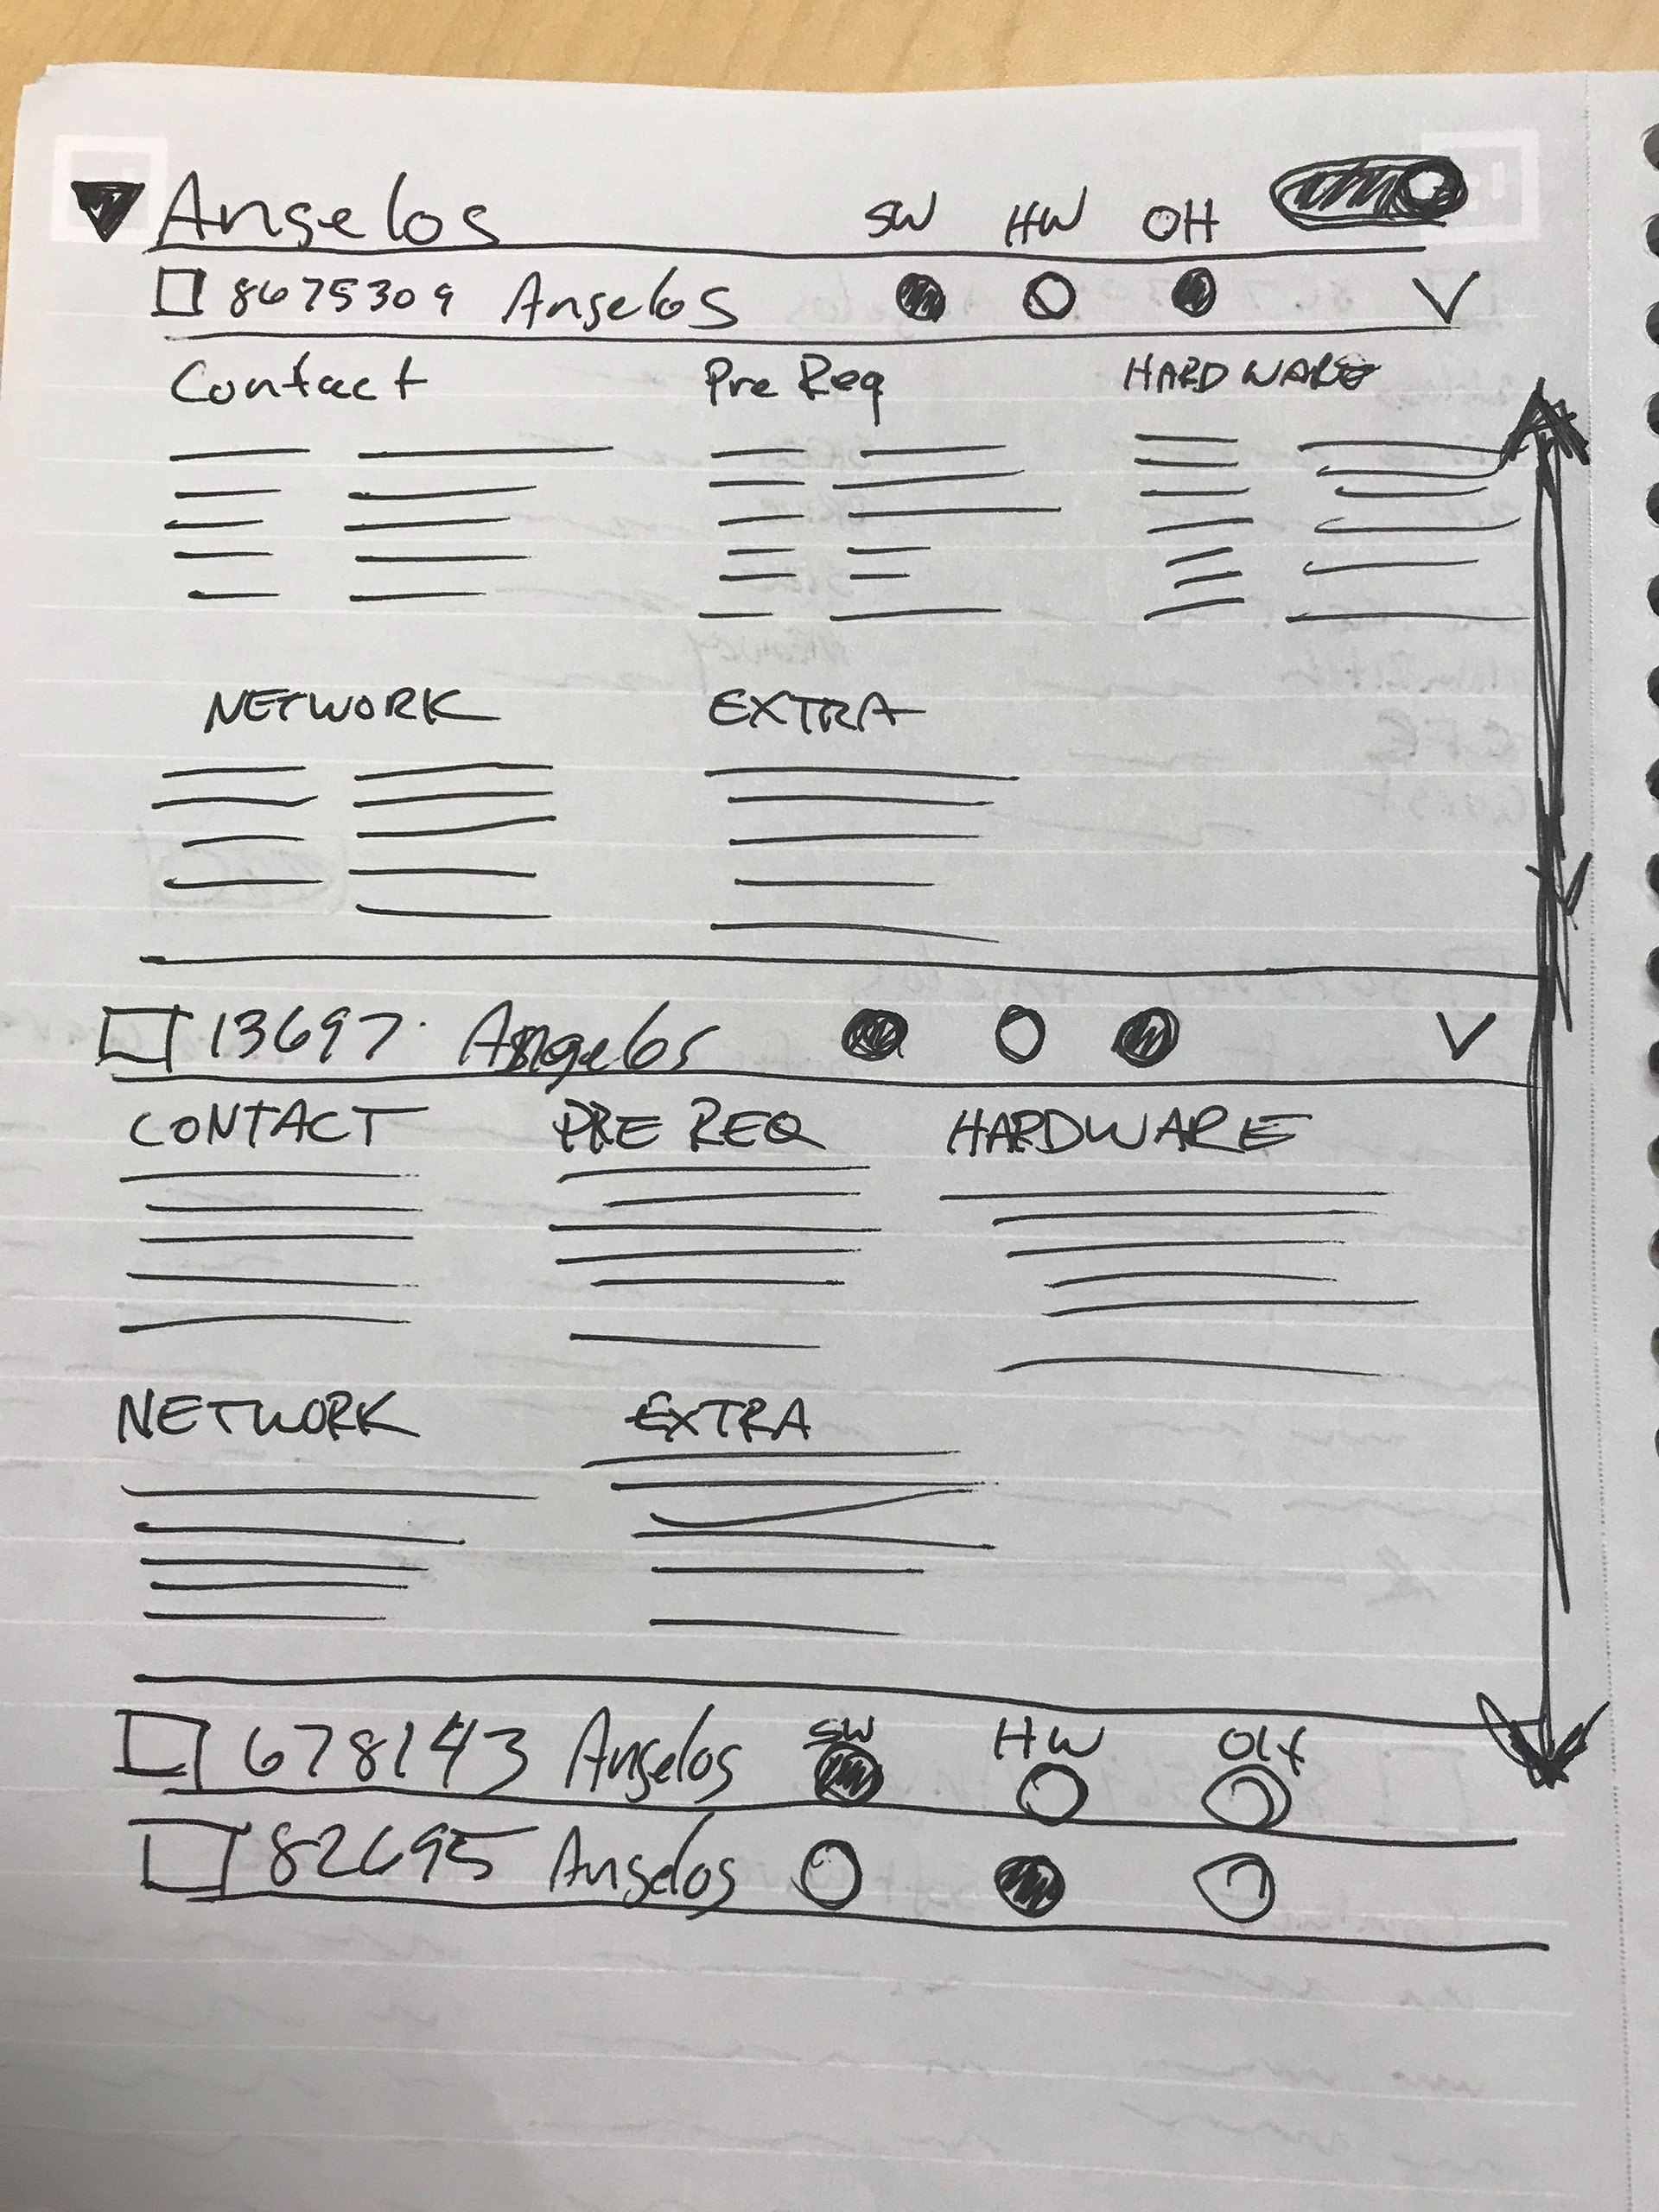 Angelos SW HW OH
8675309 Angelos
Contact Pre Req HARDWARE
NETWORK EXTRA
13697 Angelos
CONTACT PRE REQ HARDWARE
NETWORK EXTRA
678143 Angelos SW HW OH
82695 Angelos